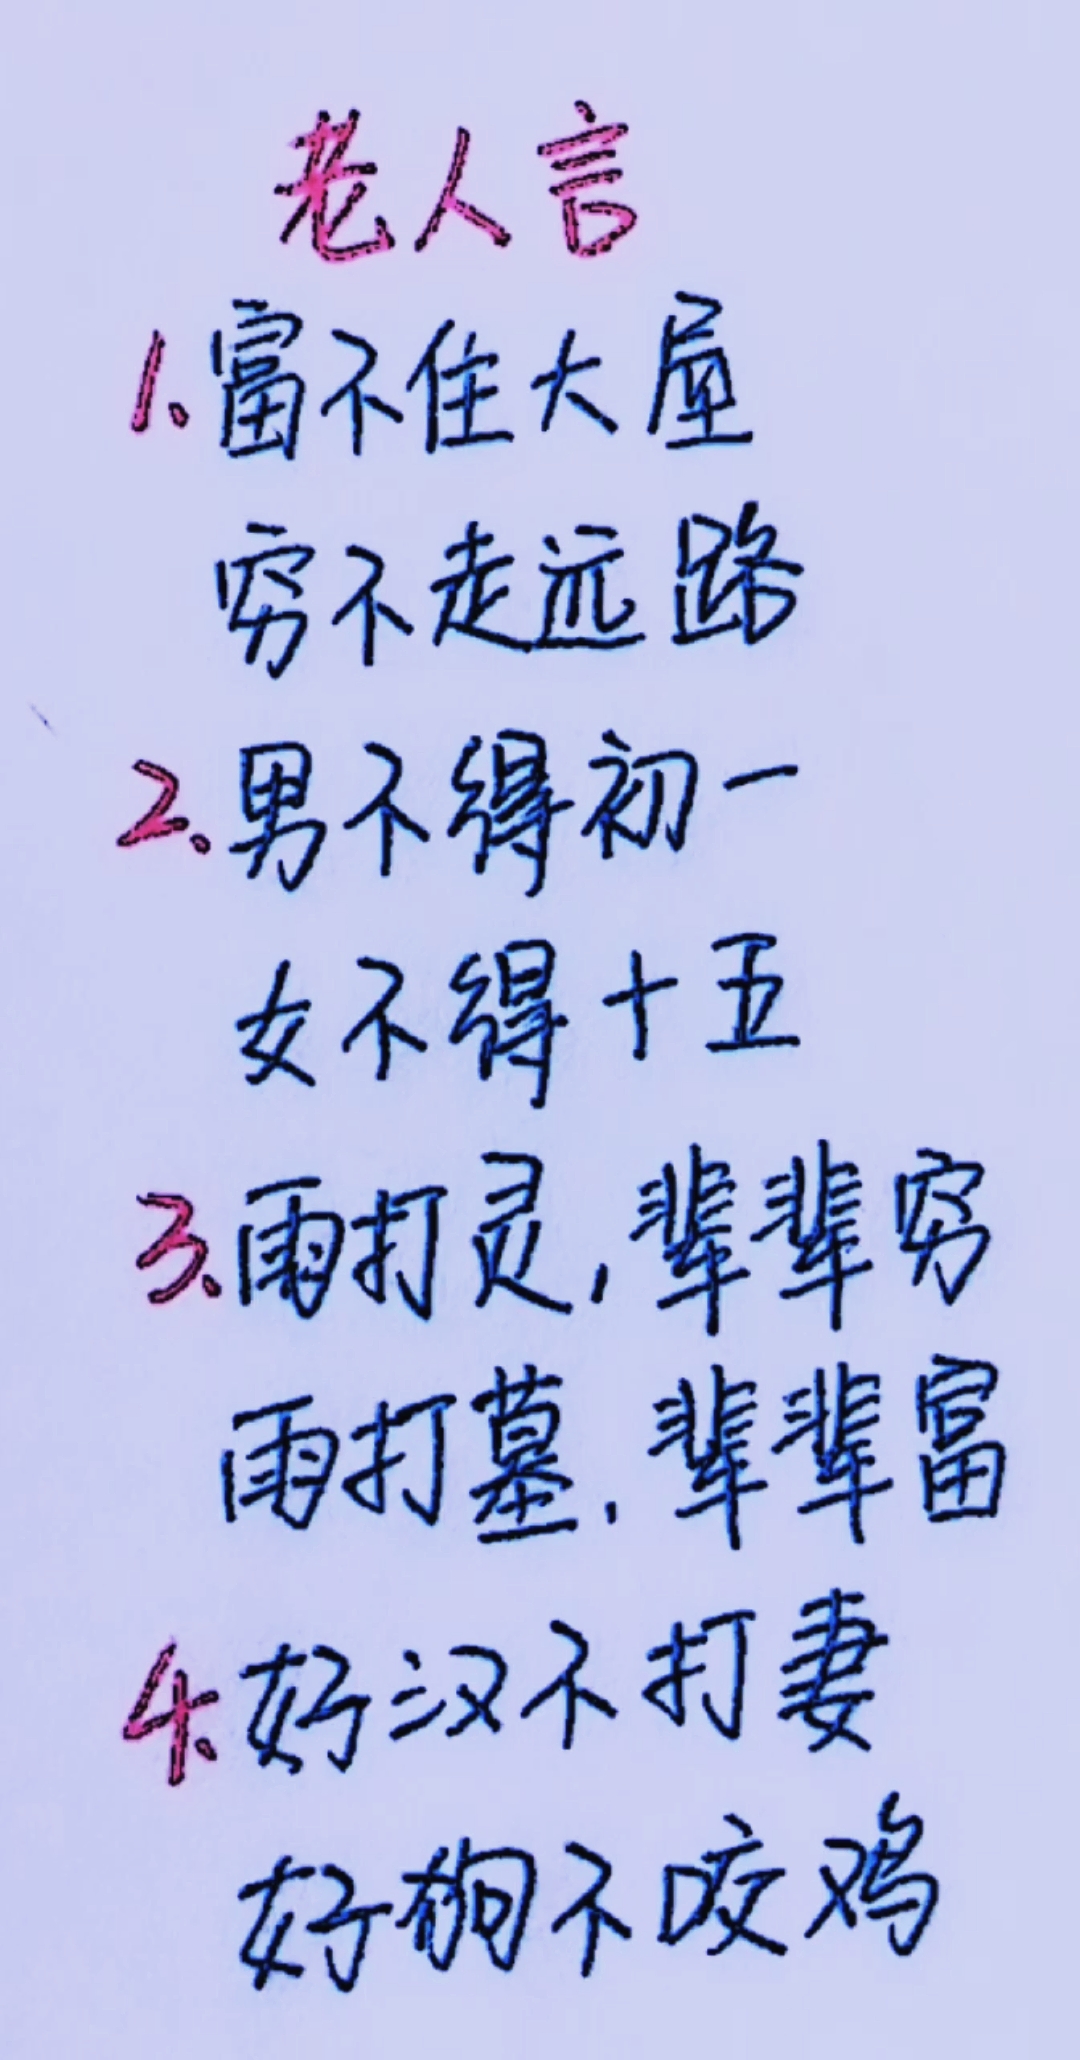 老人言
1.富不住大屋
穷不走远路
2.男不得初一
女不得十五
3.雨打灵,辈辈穷
雨打墓,辈辈富
4.好汉不打妻
好狗不咬鸡